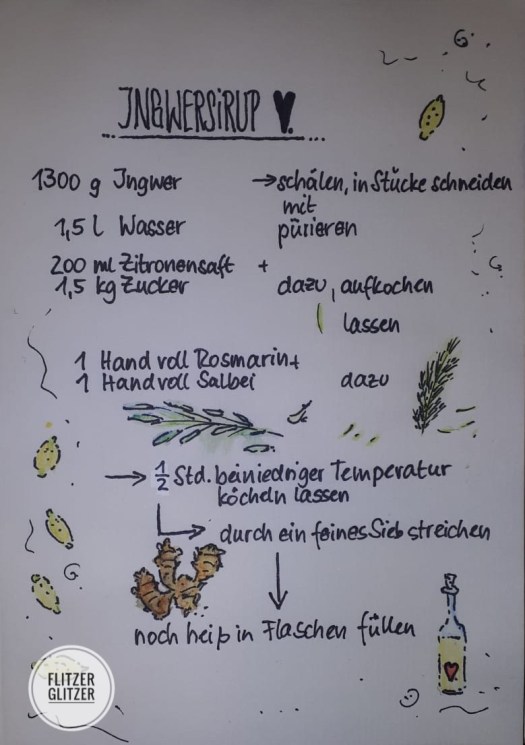 INGWERSiRUP
1300 g Ingwer → schälen, in Stücke schneiden
mit
1,5 l Wasser pürieren
200 ml Zitronensaft +
1,5 kg Zucker dazu, aufkochen
lassen
1 Hand voll Rosmarin +
1 Hand voll Salbei dazu
→ 1/2 Std. bei niedriger Temperatur
köcheln lassen
durch ein feines Sieb streichen
noch heiß in Flaschen füllen
FLITZER
GLITZER